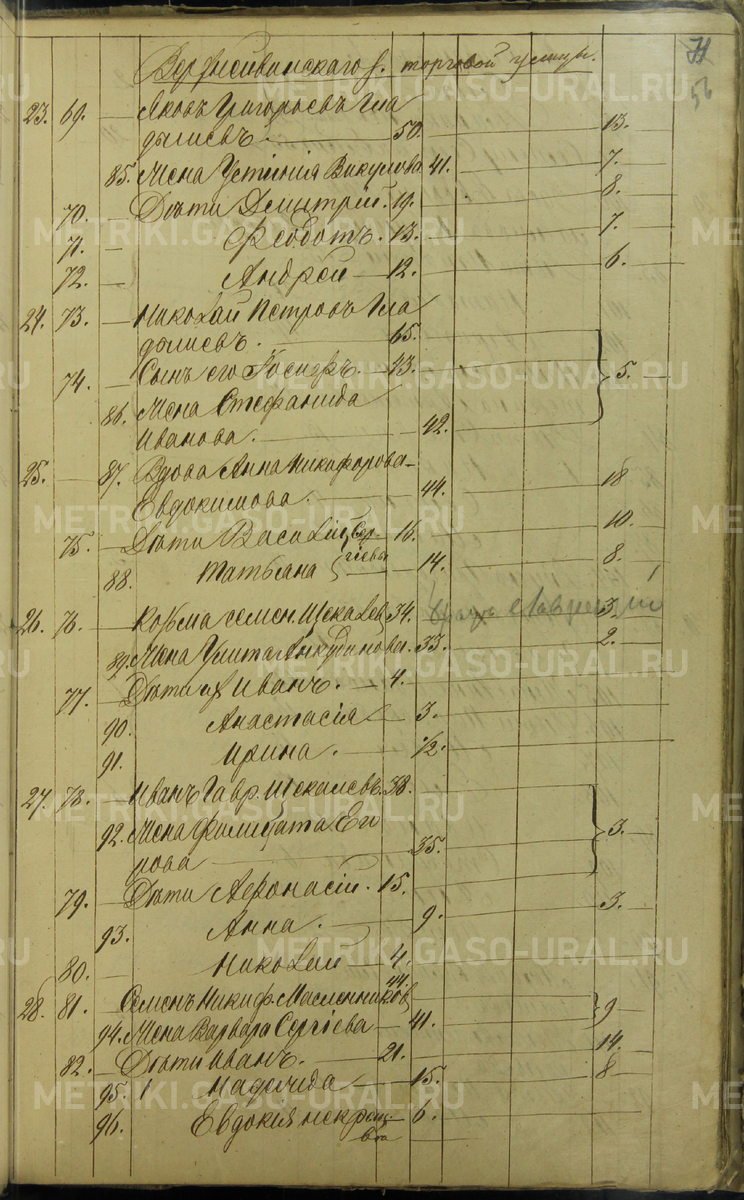 Верхисивинскаго з. торговой улицы.
71
56
23. 69. — Яковъ Григорьевъ Гла
дышевъ. — 50. 13.
85. Жена Устинія Викулова 41. 7.
70. — Дѣти Димитрій. 19. 8.
71. — Ѳеодотъ. 13. 7.
72. — Андрей — 12. 6.
24. 73. — Николай Петровъ Гла
дышевъ. — 65.
74. — Сынъ его — 43. 5.
86. Жена Стефанида
Иванова. — 42.
25. — 87. Вдова Анна Никифорова
Евдокимова. — 44. 18
75. — Дѣти Василій Сер- 16. 10.
гіевы
88. Татьяна — 14. 8.
26. 76. — Козьма Семен. Щекалев. 34. 3.
89. Жена 33. 2.
77. — Дѣти их Иванъ. — 4.
90. Анастасія — 3.
91. Ирина. — 1/2.
27. 78. — Иванъ Гавр. Щекалевъ. 38.
92. Жена Филицата Его
рова — 35. 3.
79. — Дѣти Аѳонасій. 15. 3.
93. Анна. — 9.
80. — Николай — 4.
28. 81. — Семенъ Никиф. Масленников 44.
94. Жена Варвара Сергіева — 41. 9
82. — Дѣти Иванъ. — 21. 14.
95. Надежда — 15. 8
96. Евдокія 6.
METRIKI.GASO-URAL.RU